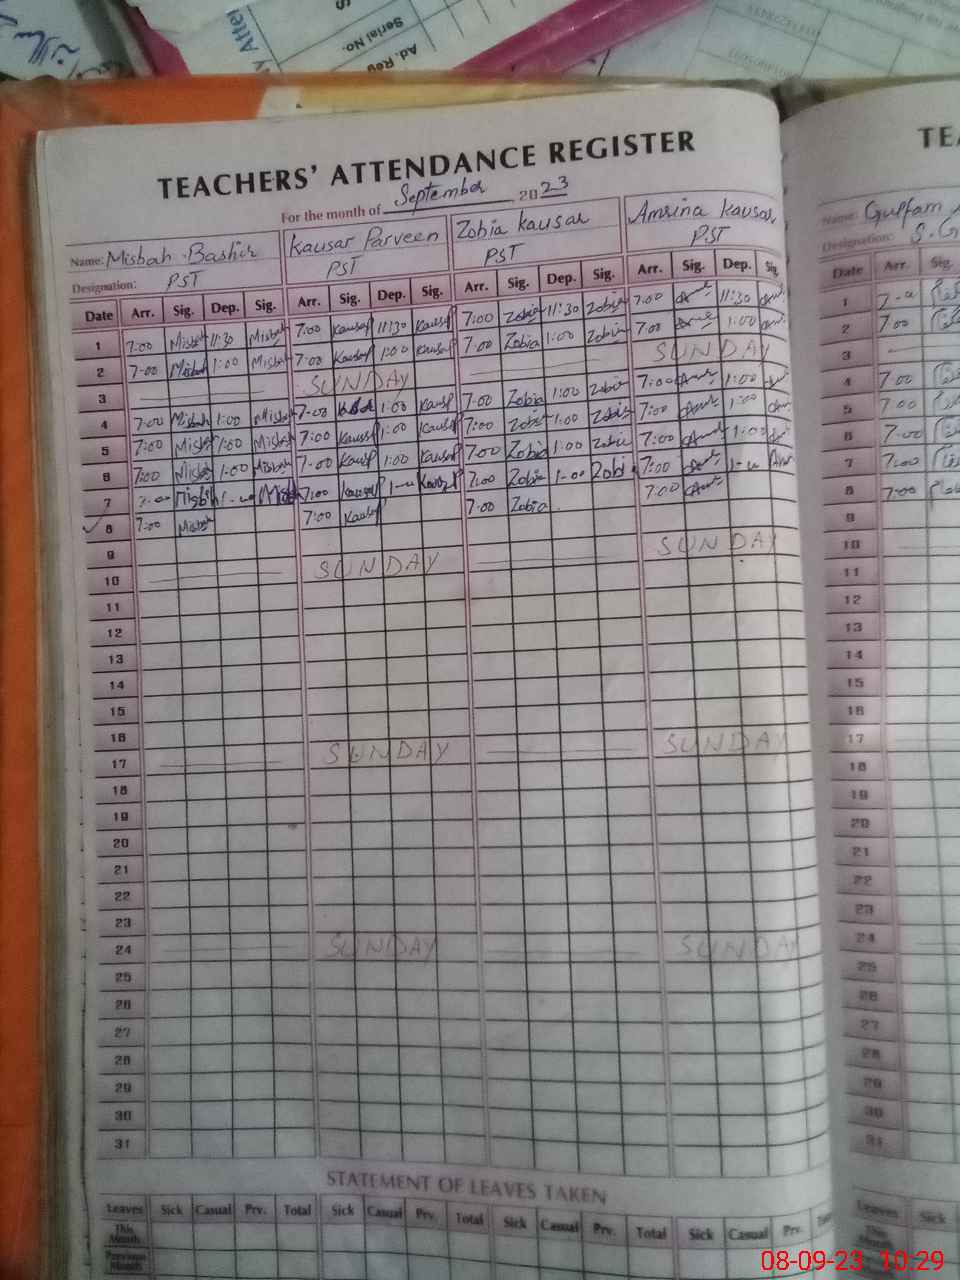 Atten
Serial No.
Ad. Rev
TEACHERS' ATTENDANCE REGISTER
For the month of September 2023
Name: Misbah Bashir Kausar Parveen Zobia Kausar Amrina Kausar
Designation: PST PST PST PST
Date Arr. Sig. Dep. Sig. Arr. Sig. Dep. Sig. Arr. Sig. Dep. Sig. Arr. Sig. Dep. Sig.
1 7:00 Misbah 11:30 Misbah 7:00 Kausar 11:30 Kausar 7:00 Zobia 11:30 Zobia 7:00 11:30
2 7:00 Misbah 1:00 Misbah 7:00 Kausar 1:00 Kausar 7:00 Zobia 1:00 Zobia 7:00 1:00
3 SUNDAY SUNDAY
4 7:00 Misbah 1:00 Misbah 7:00 1:00 Kausar 7:00 Zobia 1:00 Zobia 7:00 1:00
5 7:00 Misbah 1:00 Misbah 7:00 Kausar 1:00 Kausar 7:00 Zobia 1:00 Zobia 7:00 1:00
6 7:00 Misbah 1:00 Misbah 7:00 Kausar 1:00 Kausar 7:00 Zobia 1:00 Zobia 7:00 1:00
7 7:00 Misbah 1:00 Misbah 7:00 Kausar 1:00 Kausar 7:00 Zobia 1:00 Zobia 7:00 1:00
8 7:00 Misbah 7:00 Kausar 7:00 Zobia 7:00
9
10 SUNDAY SUNDAY
11
12
13
14
15
16
17 SUNDAY SUNDAY
18
19
20
21
22
23
24 SUNDAY SUNDAY
25
26
27
28
29
30
31
STATEMENT OF LEAVES TAKEN
Leaves Sick Casual Prv. Total Sick Casual Prv. Total Sick Casual Prv. Total Sick Casual Prv.
This Month
Previous Month
TEA
Name: Gulfam
Designation: S.G
Date Arr. Sig.
1 7:00
2 7:00
3
4 7:00
5 7:00
6 7:00
7 7:00
8 7:00
9
10
11
12
13
14
15
16
17
18
19
20
21
22
23
24
25
26
27
28
29
30
31
Leaves Sick
This Month
Previous Month
08-09-23 10.29